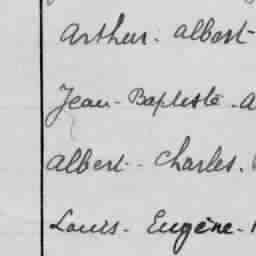 Arthur. Albert-
Jean-Baptiste. A
Albert-Charles.
Louis-Eugène-